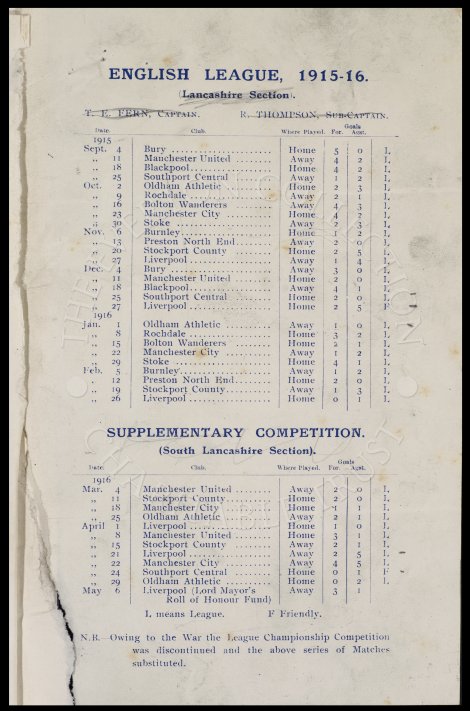 ENGLISH LEAGUE, 1915-16.
(Lancashire Section).
T. E. FERN, CAPTAIN. R. THOMPSON, SUB-CAPTAIN.
Date. Club. Where Played. Goals For. Agst.
1915
Sept. 4 Bury Home 5 0 L
,, 11 Manchester United Away 4 2 L
,, 18 Blackpool Home 4 2 L
,, 25 Southport Central Away 1 2 L
Oct. 2 Oldham Athletic Home 2 3 L
,, 9 Rochdale Away 2 1 L
,, 16 Bolton Wanderers Away 4 3 L
,, 23 Manchester City Home 4 2 L
,, 30 Stoke Away 2 3 L
Nov. 6 Burnley Home 1 2 L
,, 13 Preston North End Away 2 0 L
,, 20 Stockport County Home 2 5 L
,, 27 Liverpool Away 1 4 L
Dec. 4 Bury Away 3 0 L
,, 11 Manchester United Home 2 0 L
,, 18 Blackpool Away 4 1 L
,, 25 Southport Central Home 2 0 L
,, 27 Liverpool Home 2 5 F
1916
Jan. 1 Oldham Athletic Away 1 0 L
,, 8 Rochdale Home 3 2 L
,, 15 Bolton Wanderers Home 2 1 L
,, 22 Manchester City Away 1 2 L
,, 29 Stoke Home 4 1 L
Feb. 5 Burnley Away 1 2 L
,, 12 Preston North End Home 2 0 L
,, 19 Stockport County Away 1 3 L
,, 26 Liverpool Home 0 1 L
SUPPLEMENTARY COMPETITION.
(South Lancashire Section).
Date. Club. Where Played. Goals For. Agst.
1916
Mar. 4 Manchester United Away 2 0 L
,, 11 Stockport County Home 2 0 L
,, 18 Manchester City Home 1 1 L
,, 25 Oldham Athletic Away 2 1 L
April 1 Liverpool Home 1 0 L
,, 8 Manchester United Home 3 1 L
,, 15 Stockport County Away 2 1 L
,, 21 Liverpool Away 2 5 L
,, 22 Manchester City Away 4 5 L
,, 24 Southport Central Home 0 1 F
,, 29 Oldham Athletic Home 0 2 L
May 6 Liverpool (Lord Mayor's Away 3 1
Roll of Honour Fund)
L means League. F Friendly.
N.B.—Owing to the War the League Championship Competition
was discontinued and the above series of Matches
substituted.